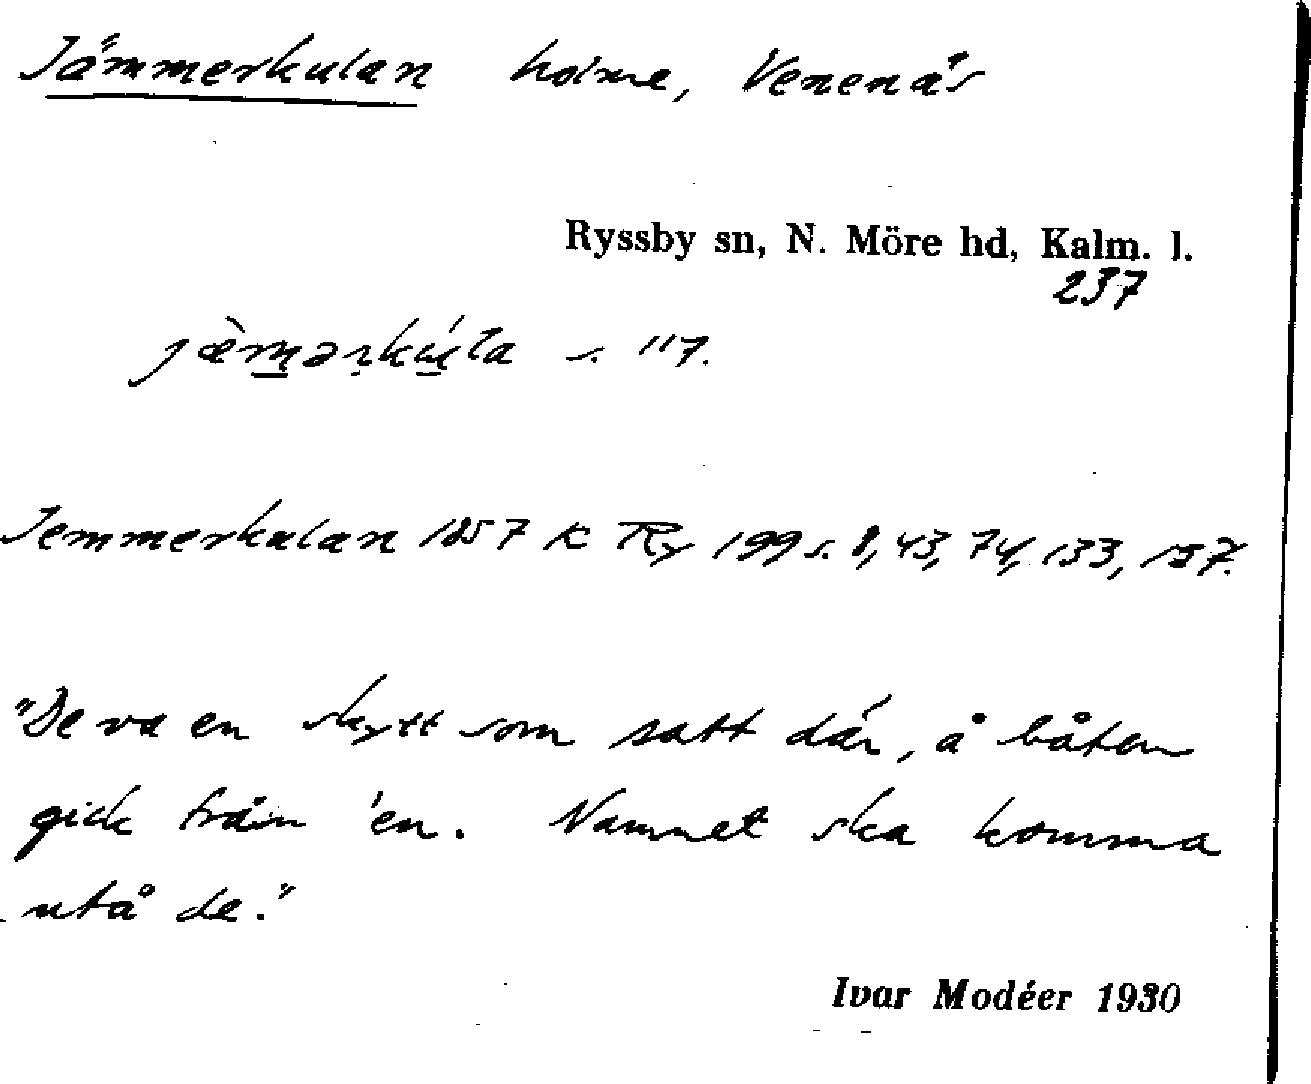 Jämmerkulan holme, Venenäs
Ryssby sn, N. Möre hd, Kalm. l.
237
jæ̀mərkúla s. 117.
Jemmerkulan 1857 K Ry 199 s. 8, 43, 74, 133, 157.
"De va en skytt som satt där, å båten
gick från 'en. Namnet ska komma
utå de."
Ivar Modéer 1930